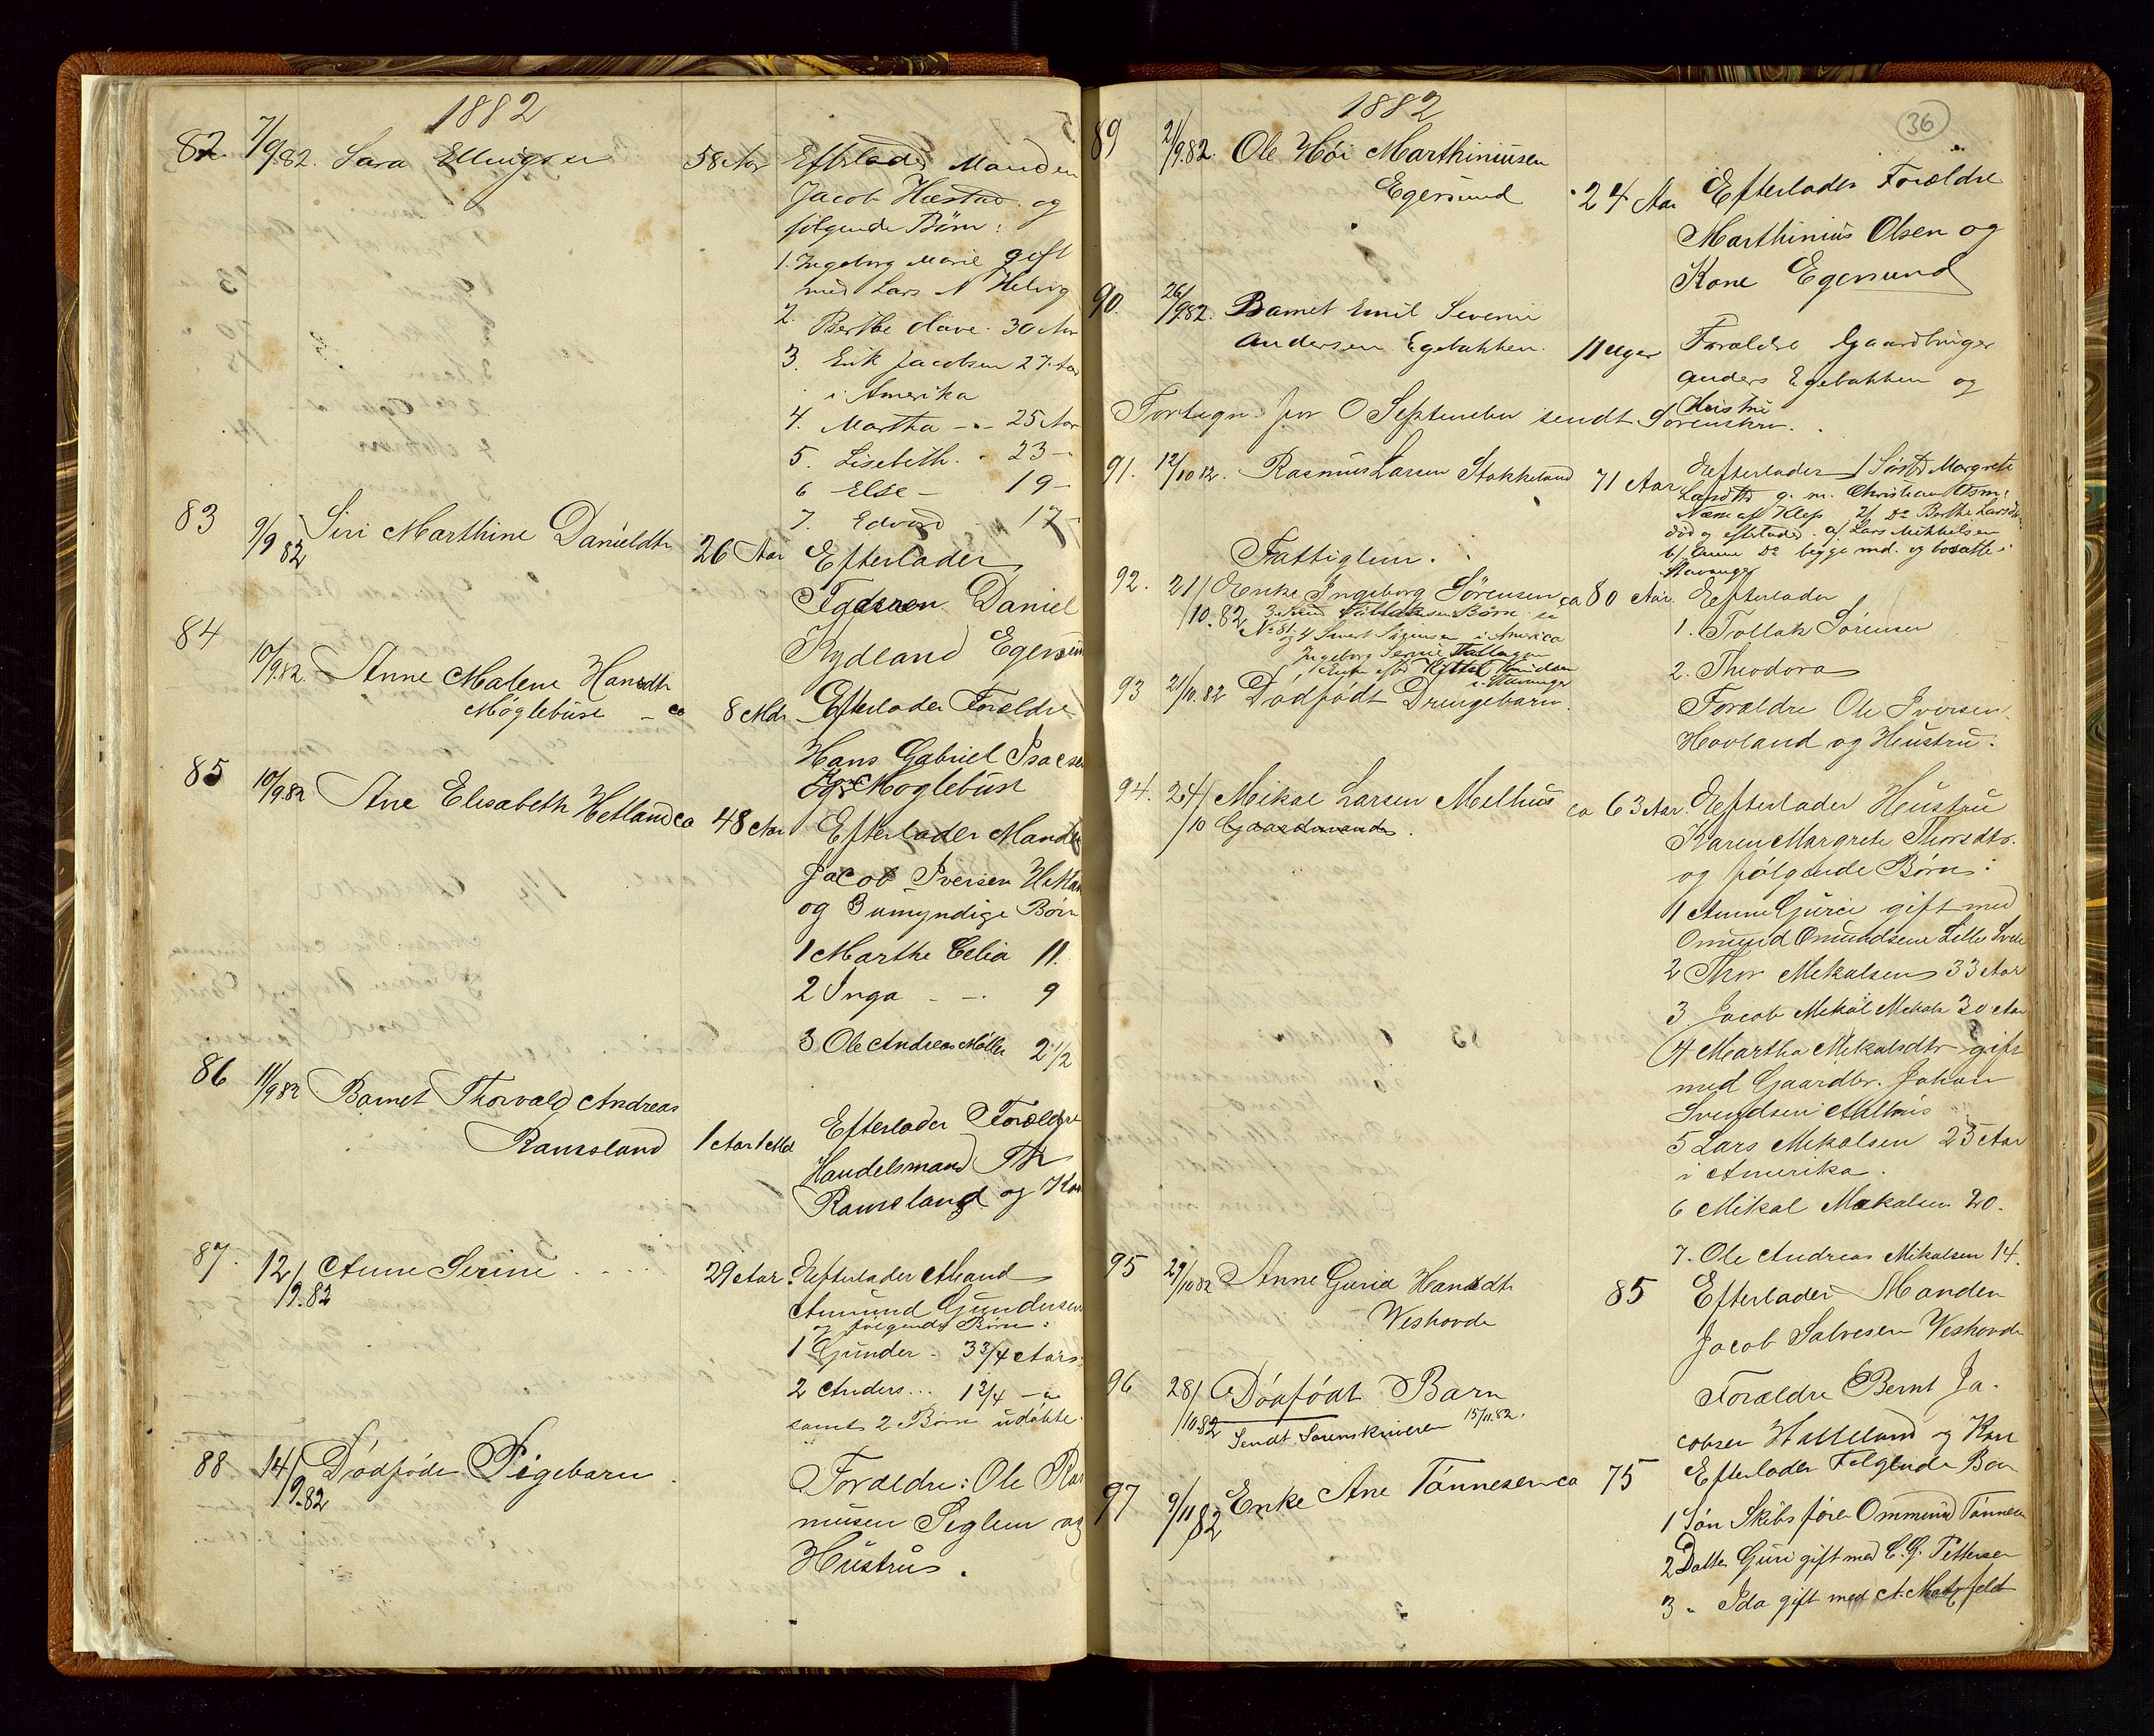 1882
82. 7/9.82. Sara Ellingsen 58 Aar Efterlader Manden
Jacob Hæstad og
følgende Børn:
1. Ingeborg Marie gift
med Lars N Helvig
2. Berthe Olave. 30 Aar
3. Erik Jacobsen 27 Aar
i Amerika
4. Martha - „ - 25 Aar
5. Lisebeth. „ 23 -
6 Else - 19 -
7. Edvard 17 -
83 9/9 82 Siri Marthine Danieldtr 26 Aar Efterlader
Faderen Daniel
Rydland Egersun
84 10/9.82. Anne Malene Hansdtr
Møglebust - ca 8 Mdr Efterlader Forældre
Hans Gabriel Isacsen
og Kone Møglebust
85 10/9.82 Ane Elisabeth Hetland ca 48 Aar Efterlader Manden
Jacob Iversen Hetlan
og 3 umyndige Børn
1 Marthe Celia 11.
2 Inga - - . 9
3 Ole Andreas Møller 2 1/2
86 11/9 82 Barnet Thorvald Andreas
Ramsland 1 Aar 1 Md Efterlader Forældre
Handelsmand Th
Ramsland og Kon
87. 12/9.82 Anne Serine 29 Aar. Efterlader Mand
Amund Gundersen
og følgende Børn:
1 Gunder - 3 3/4 Aars
2 Anders ... 1 3/4 - „
samt 2 Børn udøbte.
88 14/9.82 Dødføde Pigebarn. Forældre: Ole Ras
musen Seglem og
Hustru.
1882
36
89 21/9.82. Ole Høi Marthiniusen
Egersund 24 Aar Efterlader Forældre
Marthinius Olsen og
Kone Egersund
90. 26/9 82. Barnet Emil Severin
Andersen Egebakken. 11 Uger Forældre Gaardbruger
Anders Egebakken og
Hustru
Fortegn. for September sendt Sorenskrv.
91. 12/10 82. Rasmus Larsen Stokkeland 71 Aar Efterlader 1 Søster Margrete
Larsdtr g. m. Christian Osm:
Næse af Klep 2/ Do Berthe Larsdtr
død og efterlader a/ Lars Mikkelsen
b/ Anne Do begge md. og bosatte i
Stavanger
Fattiglem.
92. 21/10.82 Enke Ingeborg Sørensen ca 80 Aar. Efterlader
1. Tollak Sørensen
2. Theodora
No 81. og 4 Sivert Sørensen i America
93 21/10.82 Dødfødt Drengebarn. Forældre Ole Iversen
Hovland og Hustru.
94. 24/10 Mikal Larsen Melhus ca 63 Aar. Efterlader Hustru
Gaardmand.
Karen Margrete Thorsdtr.
og følgende Børn:
1 Anne Gurie gift med
Omund Omundsen Lille Svele
2 Thor Mekalsen 33 Aar
3 Jacob Mekal Mekals 30 Aar
4 Martha Mikalsdtr gift
med Gaardbr. Johan
Svendsen Aalhus
5 Lars Mekalsen 25 Aar
i Amerika.
6 Mikal Mekalsen 20.
7. Ole Andreas Mikalsen 14.
95 27/10 82 Anne Guria Hansdtr
Veshovde 85 Efterlader Manden
Jacob Salvesen Veshovde
96 28/10 82 Dødfødt Barn Forældre Bernt Ja-
cobsen Hælleland og Kone
Sendt Sorenskriveren 15/11.82.
97 9/11 82 Enke Ane Tønnesen ca 75 Efterlader Følgende Børn
1 Søn Skibsfører Ommund Tønnesen
2 Datter Guri gift med C. G. Pettersen
3 „ Ida gift med A. Motzfeldt